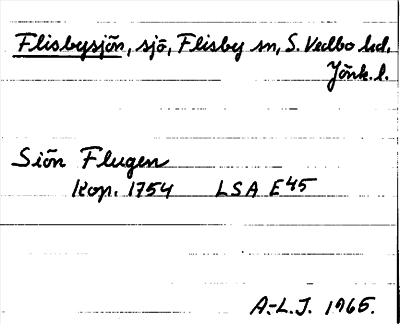 Flisbysjön, sjö, Flisby sn, S. Vedbo hd,
Jönk. l.
Siön Flugen
Kop. 1754 LSA E45
A.-L.J. 1965.